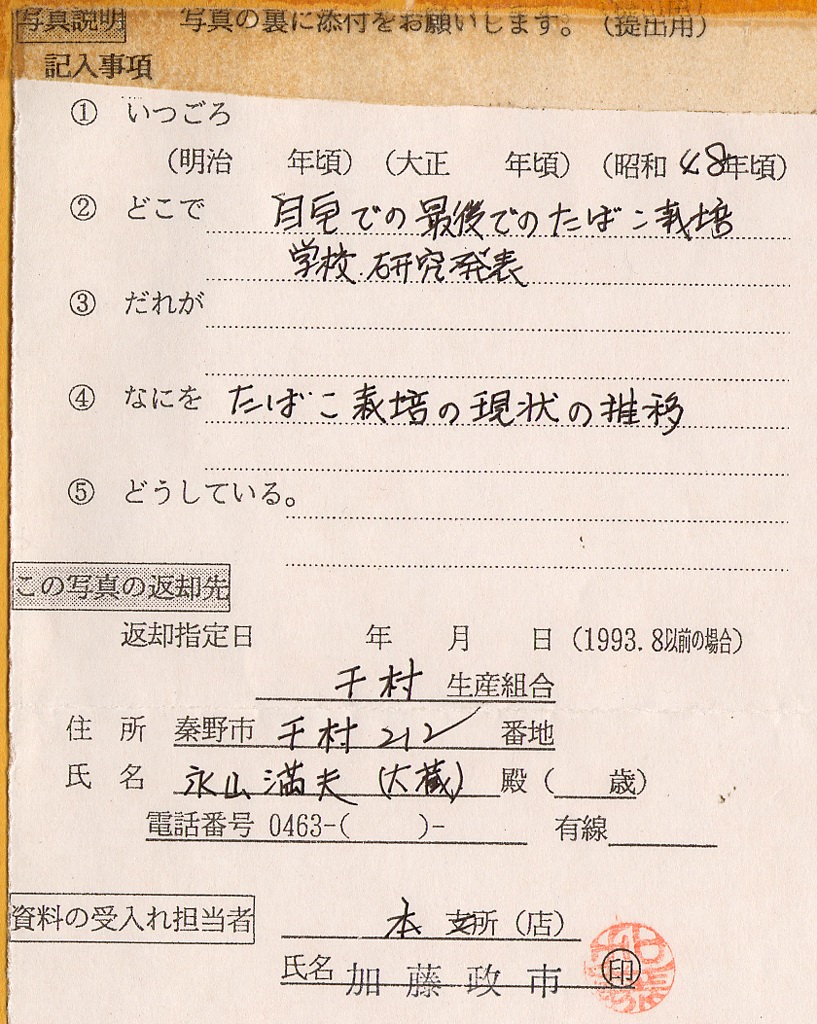 写真説明 写真の裏に添付をお願いします。（提出用）
記入事項
① いつごろ
（明治　　年頃）（大正　　年頃）（昭和 48年頃）
② どこで 自宅での最後でのたばこ栽培
学校 研究発表
③ だれが
④ なにを たばこ栽培の現状の推移
⑤ どうしている。
この写真の返却先
返却指定日　　　年　　月　　日（1993. 8以前の場合）
千村 生産組合
住 所 秦野市 千村 212 番地
氏 名 永山満夫（大蔵）殿（　　歳）
電話番号 0463-(　　　)-　　　　有線
資料の受入れ担当者 本 支所（店）
氏名 加藤政市 印